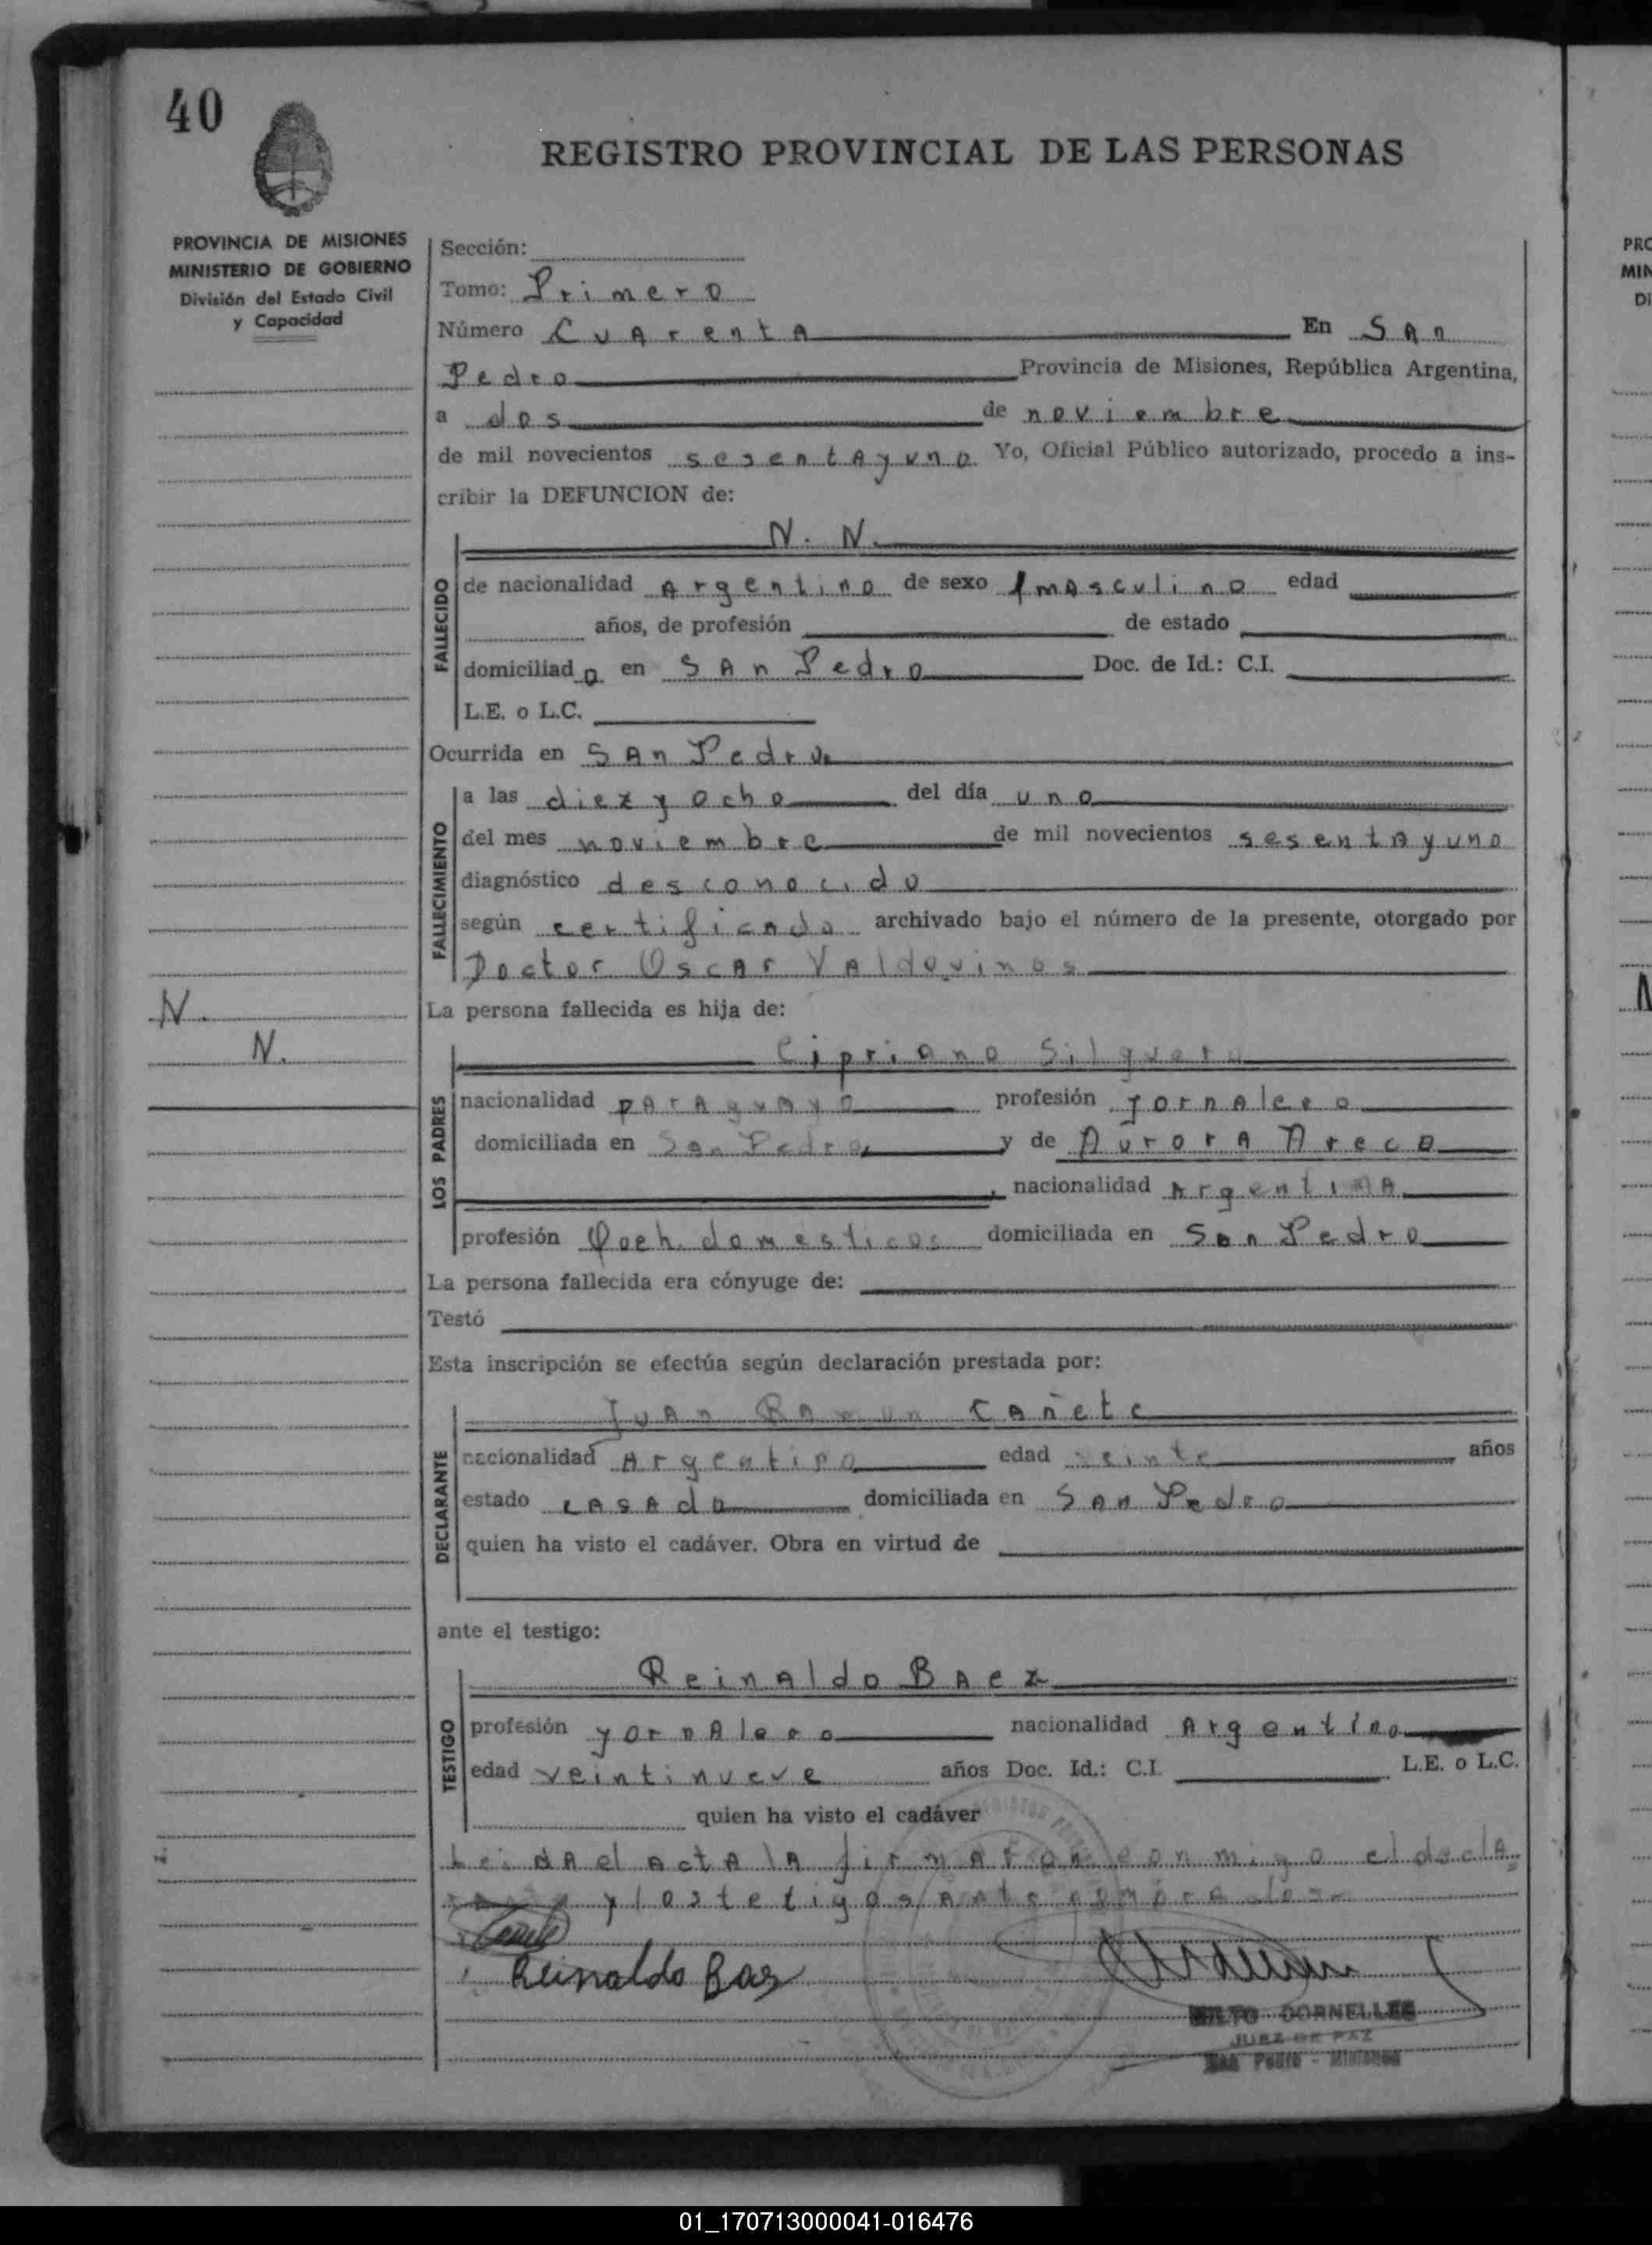 40
REGISTRO PROVINCIAL DE LAS PERSONAS
PROVINCIA DE MISIONES
MINISTERIO DE GOBIERNO
División del Estado Civil
y Capacidad
Sección:
Tomo: Primero
Número Cuarenta En San
Pedro Provincia de Misiones, República Argentina,
a dos de noviembre
de mil novecientos sesenta y uno Yo, Oficial Público autorizado, procedo a ins-
cribir la DEFUNCION de:
N. N.
FALLECIDO
de nacionalidad Argentino de sexo masculino edad
años, de profesión de estado
domiciliado en San Pedro Doc. de Id.: C.I.
L.E. o L.C.
Ocurrida en San Pedro
FALLECIMIENTO
a las diez y ocho del día uno
del mes noviembre de mil novecientos sesenta y uno
diagnóstico desconocido
según certificado archivado bajo el número de la presente, otorgado por
Doctor Oscar Valdovinos
N.
N.
La persona fallecida es hija de:
LOS PADRES
Cipriano Silguero
nacionalidad paraguayo profesión jornalero
domiciliada en San Pedro y de Aurora Areco
, nacionalidad Argentina
profesión Queh. domesticos domiciliada en San Pedro
La persona fallecida era cónyuge de:
Testó
Esta inscripción se efectúa según declaración prestada por:
DECLARANTE
Juan Ramon Cañete
nacionalidad Argentino edad veinte años
estado casado domiciliada en San Pedro
quien ha visto el cadáver. Obra en virtud de
ante el testigo:
TESTIGO
Reinaldo Baez
profesión yornalero nacionalidad Argentino
edad veintinueve años Doc. Id.: C.I. L.E. o L.C.
quien ha visto el cadáver
Leida el acta la firmaron conmigo el decla
y los tetigos ante nombrados
Reinaldo Baez
MILTO DORNELLES
JUEZ DE PAZ
San Pedro - Misiones
PRO
MIN
Di
01_170713000041-016476